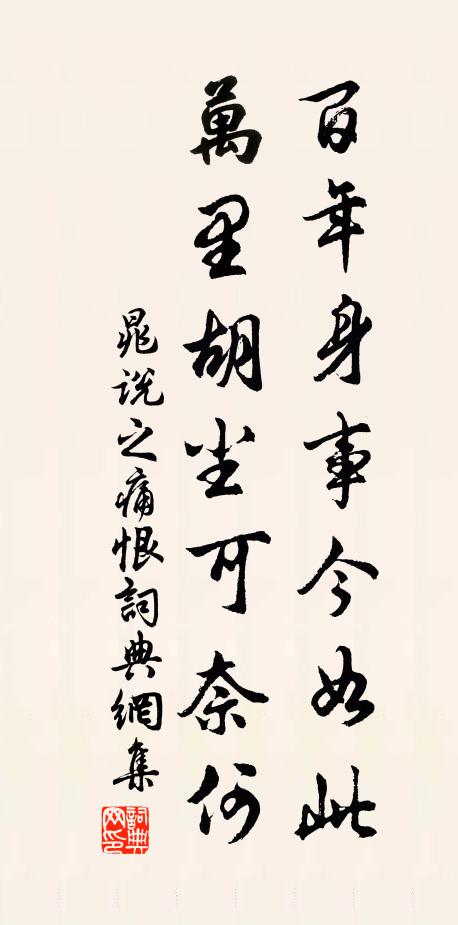 百年身事今如此
萬里胡尘可奈何
晁說之痛恨詞典網集
詞典网印